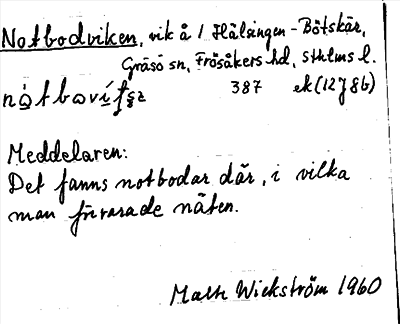 Notbodviken, vik å / Hälsingen-Bötskär,
Gräsö sn, Frösåkers hd, sthlms l.
387 ek (12J8b)
Meddelaren:
Det fanns notbodar där, i vilka
man förvarade näten.
Mats Wickström 1960